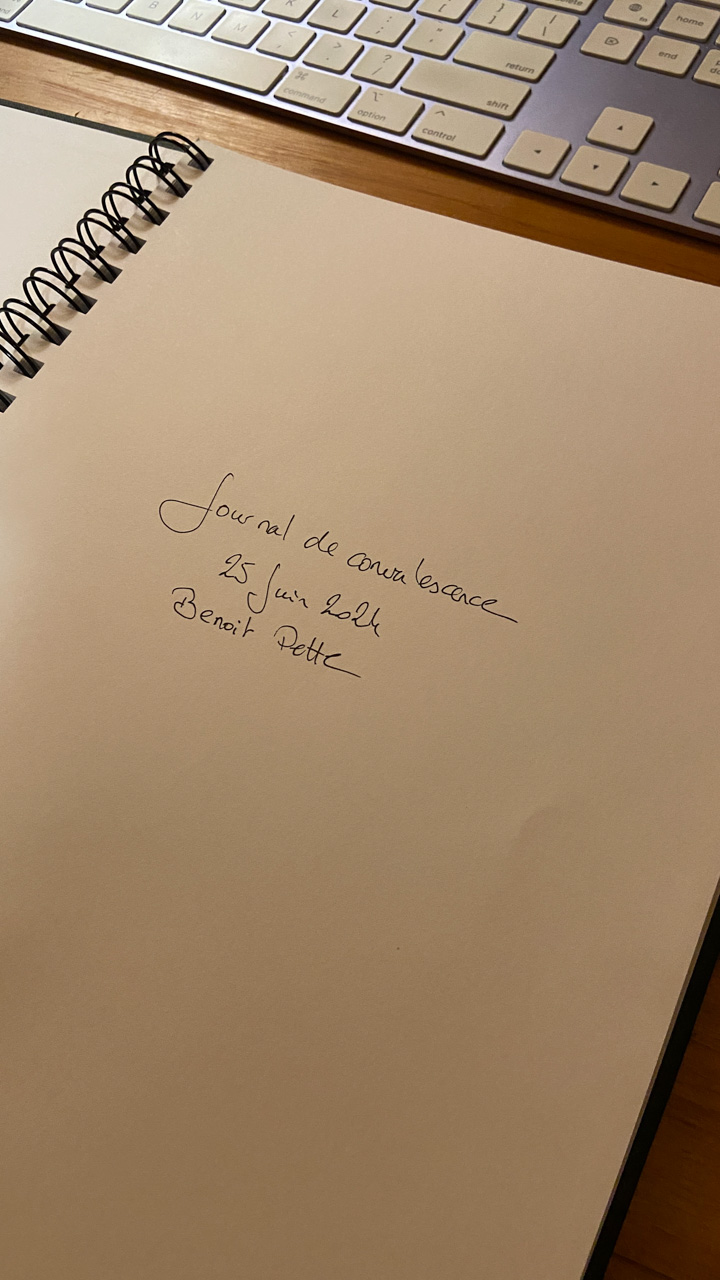 B N M K L : ; " ' { [ } ] | \ delete fn home
< , > . ? / return end
⌘ command ⌥ option ^ control shift
◄ ▲ ▼ ►
Journal de convalescence
25 Juin 2024
Benoit Pette